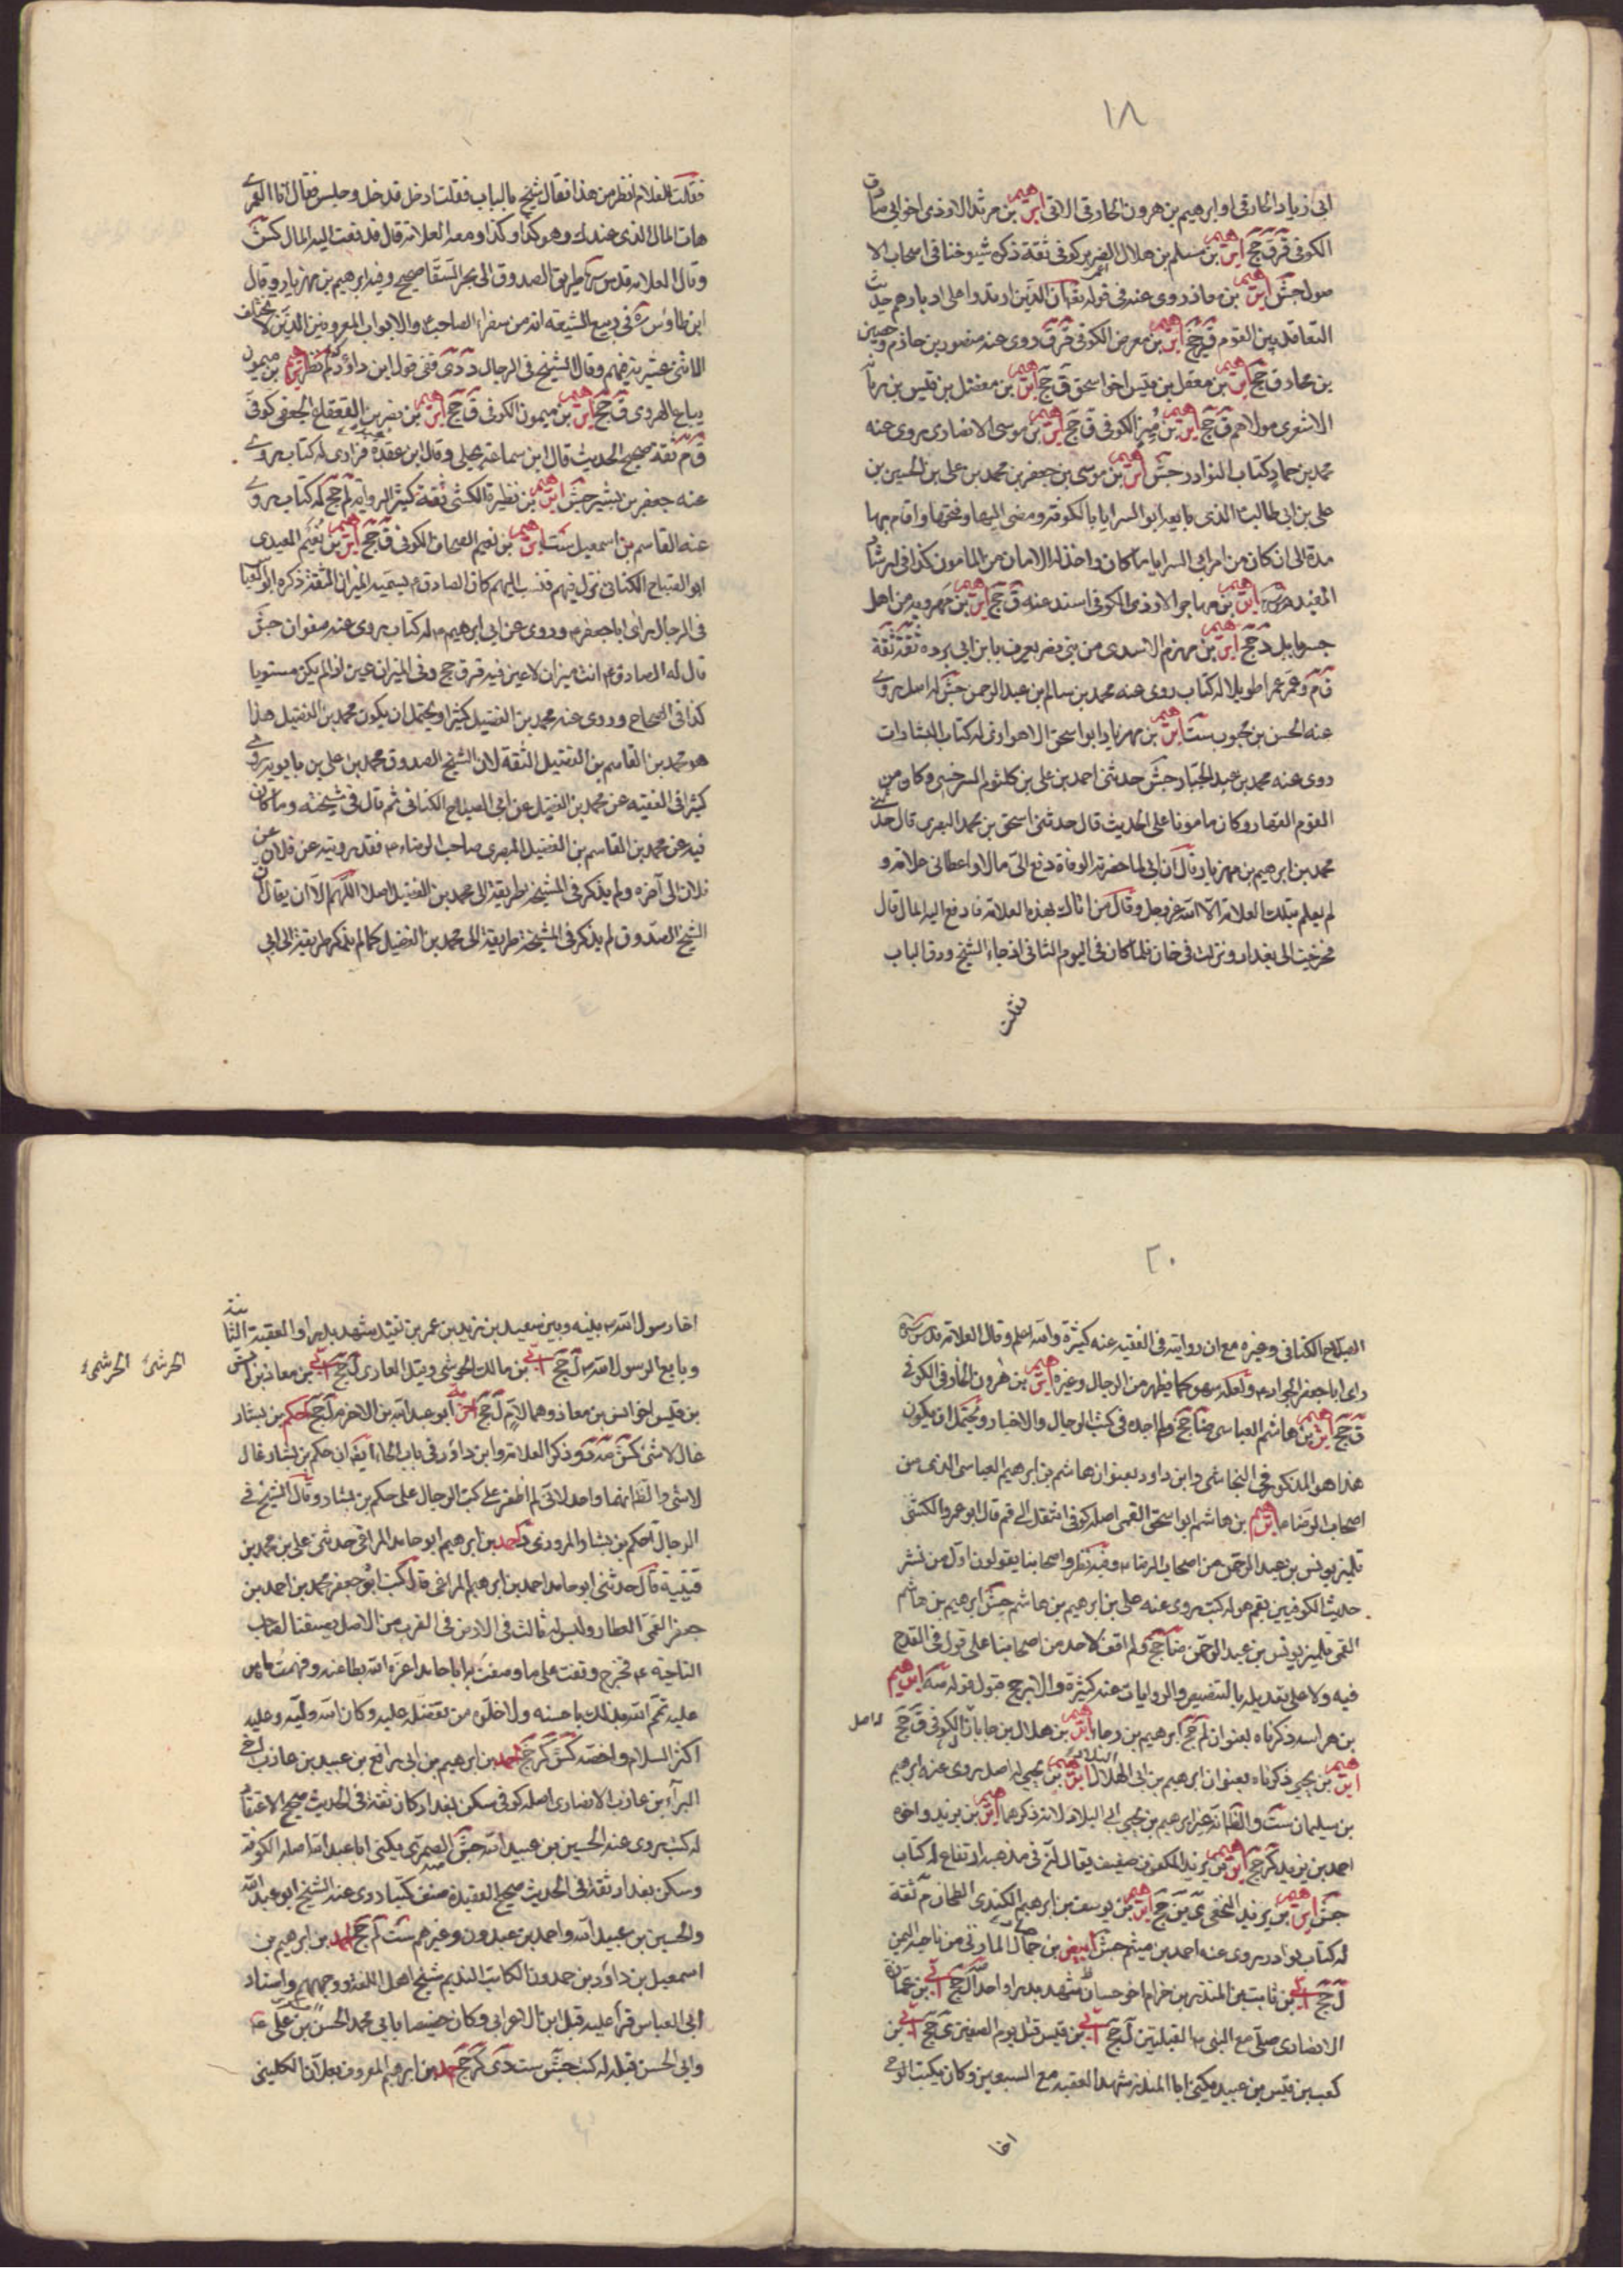 ١٨
ابی زیاد الحارقی او ابرهیم بن هرون الحارقی الاتی ابرهیم بن مرثد الاوزدی اخو ابی صادق
الکوفی ق ق جخ ابرهیم بن مسلم بن هلال الضریر کوفی ثقة ذکره شیوخنا فی اصحاب الا
صول جش ابرهیم بن معاذ روی عنه فی قوله تعالی ان الذین ارتدوا علی ادبارهم حدیث
التعاقد بین القوم قر جخ ابرهیم بن معرض الکوفی ق ق روی عنه منصور بن حازم وحصین
بن مخارق جخ ابرهیم بن معقل بن قیس اخو اسحق ق جخ ابرهیم بن مفضل بن قیس بن رمانه
الاشعری مولاهم ق جخ ابرهیم بن منیر الکوفی ق جخ ابرهیم بن موسی الانصاری روی عنه
محمد بن حماد کتاب النوادر جش ابرهیم بن موسی بن جعفر بن محمد بن علی بن الحسین بن
علی بن ابی طالب الذی بایعه ابو السرایا بالکوفة ومضی الیها وفتحها واقام بها
مدة الی ان کان من امر ابی السرایا ما کان واخذ له الامان من المامون کذا فی ارشاد
المفید ابرهیم بن مهاجر الازدی الکوفی اسند عنه ق جخ ابرهیم بن مهرویه من اهل
جسر بابل د جخ ابرهیم بن مهزم الاسدی من بنی نصر یعرف بابن ابی برده ثقة ثقة
ق م وعمر عمرا طویلا له کتاب روی عنه محمد بن سالم بن عبد الرحمن جش له اصل یروی
عنه الحسن بن محبوب ست ابرهیم بن مهزیار ابو اسحق الاهوازی له کتاب البشارات
روی عنه محمد بن عبد الجبار جش حدثنی احمد بن علی بن کلثوم السرخسی وکان من
القوم الفقهاء وکان مامونا علی الحدیث قال حدثنی اسحق بن محمد البصری قال حدثنی
محمد بن ابرهیم بن مهزیار قال ان ابی لما حضرته الوفاة دفع الی مالا واعطانی علامة و
لم یعلم بتلک العلامة الا الله عز وجل وقال من اتاک بهذه العلامة فادفع الیه المال قال
فخرجت الی بغداد ونزلت فی خان فلما کان فی الیوم الثانی اذ جاء الشیخ ودق الباب
فقلت
فقلت للغلام انظر من هذا فقال شیخ بالباب فقلت ادخل فدخل وجلس فقال انا العمری
هات المال الذی عندک وهو کذا وکذا ومعه العلامة قال فدفعت الیه المال کش
وقال العلامة قدس سره طریق الصدوق الی بحر السقا صحیح وفیه ابرهیم بن مهزیار وقال
ابن طاوس ره فی ربیع الشیعه انه من سفراء الصاحب ع والابواب المعروفین الذین لا یختلف
الاثنی عشریة فیهم وقال الشیخ فی الرجال د دی ففی قول ابن داود لم نظر ابرهیم بن میمون
بیاع الهروی ق جخ ابرهیم بن میمون الکوفی ق جخ ابرهیم بن نصر بن القعقاع الجعفی کوفی
ق م ثقة صحیح الحدیث قال ابن سماعة بجلی وقال ابن عقده فزاری له کتاب یروی
عنه جعفر بن بشیر جش ابرهیم بن نظیرة الکشی ثقة کثیر الروایة لم جخ له کتاب یروی
عنه القاسم بن اسمعیل ست ابرهیم بن نعیم الصحاف الکوفی ق جخ ابرهیم بن نعیم العبدی
ابو الصباح الکنانی نزل فیهم فنسب الیهم کان الصادق ع یسمیه المیزان لثقته ذکره ابو العباس
فی الرجال رای ابا جعفر ع وروی عن ابی ابرهیم ع له کتاب یروی عنه صفوان جش
قال له الصادق ع انت میزان لا عین فیه قر ق جخ وفی المیزان عین اذا لم یکن مستویا
کذا فی الصحاح وروی عنه محمد بن الفضیل کثیرا ویحتمل ان یکون محمد بن الفضیل هذا
هو محمد بن القاسم بن الفضیل الثقة لان الشیخ الصدوق محمد بن علی بن بابویه یروی
کثیرا فی الفقیه عن محمد بن الفضیل عن ابی الصباح الکنانی ثم قال فی مشیخته وما کان
فیه عن محمد بن القاسم بن الفضیل البصری صاحب الرضاء ع فقد رویته عن فلان عن
فلان الی آخره ولم یذکر فی المشیخة طریقه الی محمد بن الفضیل اصلا اللهم الا ان یقال ان
الشیخ الصدوق لم یذکر فی المشیخة طریقه الی محمد بن الفضیل کما لم یذکر طریقه الی ابی
٢٠
الصباح الکنانی وغیره مع ان روایته فی الفقیه عنه کثیرة والله اعلم وقال العلامة قدس سره
رای ابا جعفر الجواد ع ولعله سهو کما یظهر من الرجال وغیره ابرهیم بن هرون الخارفی الکوفی
ق جخ ابرهیم بن هاشم العباسی ضا جخ ولم اجده فی کتب الرجال والاخبار ویحتمل ان یکون
هذا هو المذکور فی النجاشی وابن داود بعنوان هاشم بن ابرهیم العباسی الذی من
اصحاب الرضا ع ابرهیم بن هاشم ابو اسحق القمی اصله کوفی انتقل الی قم قال ابو عمرو الکشی
تلمیذ یونس بن عبد الرحمن من اصحاب الرضا ع وفیه نظر واصحابنا یقولون اول من نشر
حدیث الکوفیین بقم هو له کتب روی عنه علی بن ابرهیم بن هاشم جش ابرهیم بن هاشم
القمی تلمیذ یونس بن عبد الرحمن ضا جخ ولم اقف لاحد من اصحابنا علی قول فی القدح
فیه ولا علی تعدیله بالتنصیص والروایات عنه کثیرة والارجح قبول قوله صه ابرهیم
بن هراسه ذکرناه بعنوان لم جخ ابرهیم بن رجا ابرهیم بن هلال بن جابان الکوفی ق جخ
له اصل
ابرهیم بن یحیی ذکرناه بعنوان ابرهیم بن ابی البلاد ابرهیم بن یحیی له اصل روی عنه ابرهیم
بن سلیمان ست والظ انه غیر ابرهیم بن یحیی ابی البلاد لانه ذکرهما ابرهیم بن یزید واخوه
احمد بن یزید کر جخ ابرهیم بن یزید المکفوف ضعیف یقال ان فی مذهبه ارتفاع له کتاب
جش ابرهیم بن یزید النخعی ی ین جخ ابرهیم بن یوسف بن ابرهیم الکندی الطحان م ثقة
له کتاب نوادر یروی عنه احمد بن میثم جش ابیض بن حمال المازنی من ناحیة الیمن
ل جخ ابی بن ثابت بن المنذر بن حزام اخو حسان شهد بدرا واحدا ل جخ ابی بن عمارة
الانصاری صلی مع النبی ص القبلتین ل جخ ابی بن قیس قتل یوم الصفین ی جخ ابی بن
کعب بن قیس بن عبید یکنی ابا المنذر شهد العقبة مع السبعین وکان یکتب الوحی
اخا
اخا رسول الله ص بینه وبین سعید بن زید بن عمر بن نفیل شهد بدرا والعقبة الثانیة
وبایع لرسول الله ص ل جخ ابی بن مالک الحرشی وقیل العامری ل جخ ابی بن معاذ بن انس
الحرشی الحرشی
بن قیس اخو انس بن معاذ وهما لاب ل جخ ابو عبد الله بن الاخرم ل جخ احکم بن بشار
غال لا شیء کش صه د وذکر العلامة وابن داود فی باب الحاء ایضا ان حکم بن بشار غال
لا شیء والظ انهما واحد لانی لم اظفر علی کتب الرجال علی حکم بن بشار وقال الشیخ فی
الرجال احکم بن بشار المروزی د احمد بن ابرهیم ابو حامد المراغی حدثنی علی بن محمد بن
قتیبة قال حدثنی ابو حامد احمد بن ابرهیم المراغی قال کتب ابو جعفر محمد بن احمد بن
جعفر القمی العطار ولیس له ثالث فی الارض فی القرب من الاصل یصفنا لصاحب
الناحیة ع فخرج وقفت علی ما وصفت به ابا حامد اعزه الله بطاعته وفهمت ما هو
علیه تمم الله ذلک باحسنه ولا اخلاه من تفضله علیه وکان الله ولیه وعلیه
اکثر السلام واخصه کش کر جخ احمد بن ابرهیم بن ابی رافع بن عبید بن عازب اخی
البرآء بن عازب الانصاری اصله کوفی سکن بغداد کان ثقة فی الحدیث صحیح الاعتقاد
له کتب روی عنه الحسین بن عبید الله جش الصیمری یکنی ابا عبد الله اصله الکوفة
وسکن بغداد ثقة فی الحدیث صحیح العقیدة صنف کتبا روی عنه الشیخ ابو عبد الله
والحسین بن عبید الله واحمد بن عبدون وغیرهم ست لم جخ احمد بن ابرهیم بن
اسمعیل بن داود بن حمدون الکاتب الندیم شیخ اهل اللغة ووجههم واستاد
ابی العباس قرأ علیه قبل ابن الاعرابی وکان خصیصا بابی محمد الحسن بن علی ع
وابی الحسن قبله له کتب جش ست دی کر جخ احمد بن ابرهیم المعروف بعلان الکلینی